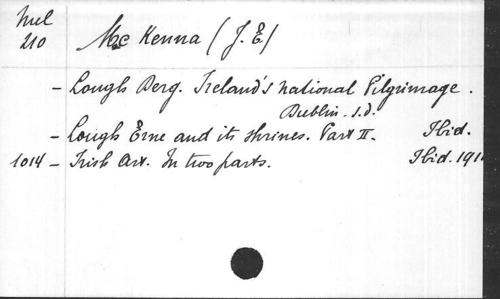 Mel
210
Mc Kenna (J. E)
- Lough Derg. Ireland's national Pilgrimage.
Dublin. s.d.
- Lough Erne and its shrines. Part II. Ibid.
1014 - Irish Art. In two parts. Ibid. 191